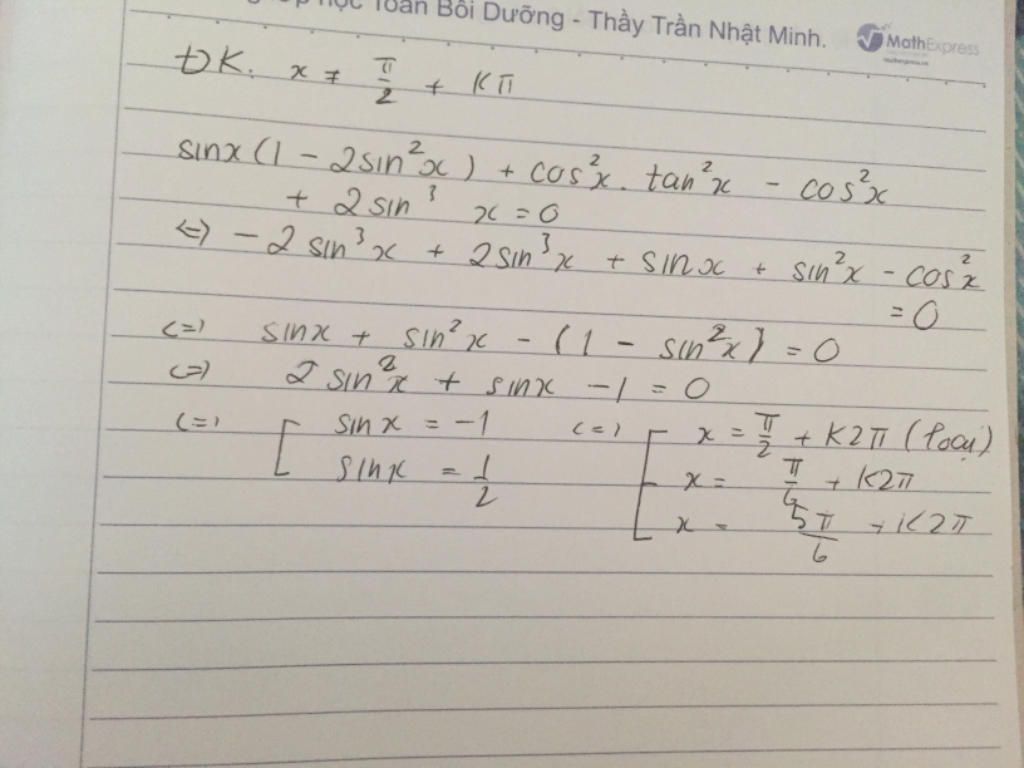 học Toán Bồi Dưỡng - Thầy Trần Nhật Minh.
MathExpress
ĐK: x ≠ π/2 + Kπ
sinx (1 - 2sin²x) + cos²x . tan²x - cos²x
+ 2sin³ x = 0
<=> -2sin³x + 2sin³x + sinx + sin²x - cos²x
= 0
<=> sinx + sin²x - (1 - sin²x) = 0
<=> 2sin²x + sinx - 1 = 0
<=> [ sinx = -1 <=> [ x = π/2 + K2π (loại)
sinx = 1/2 x = π/6 + K2π
x = 5π/6 + K2π